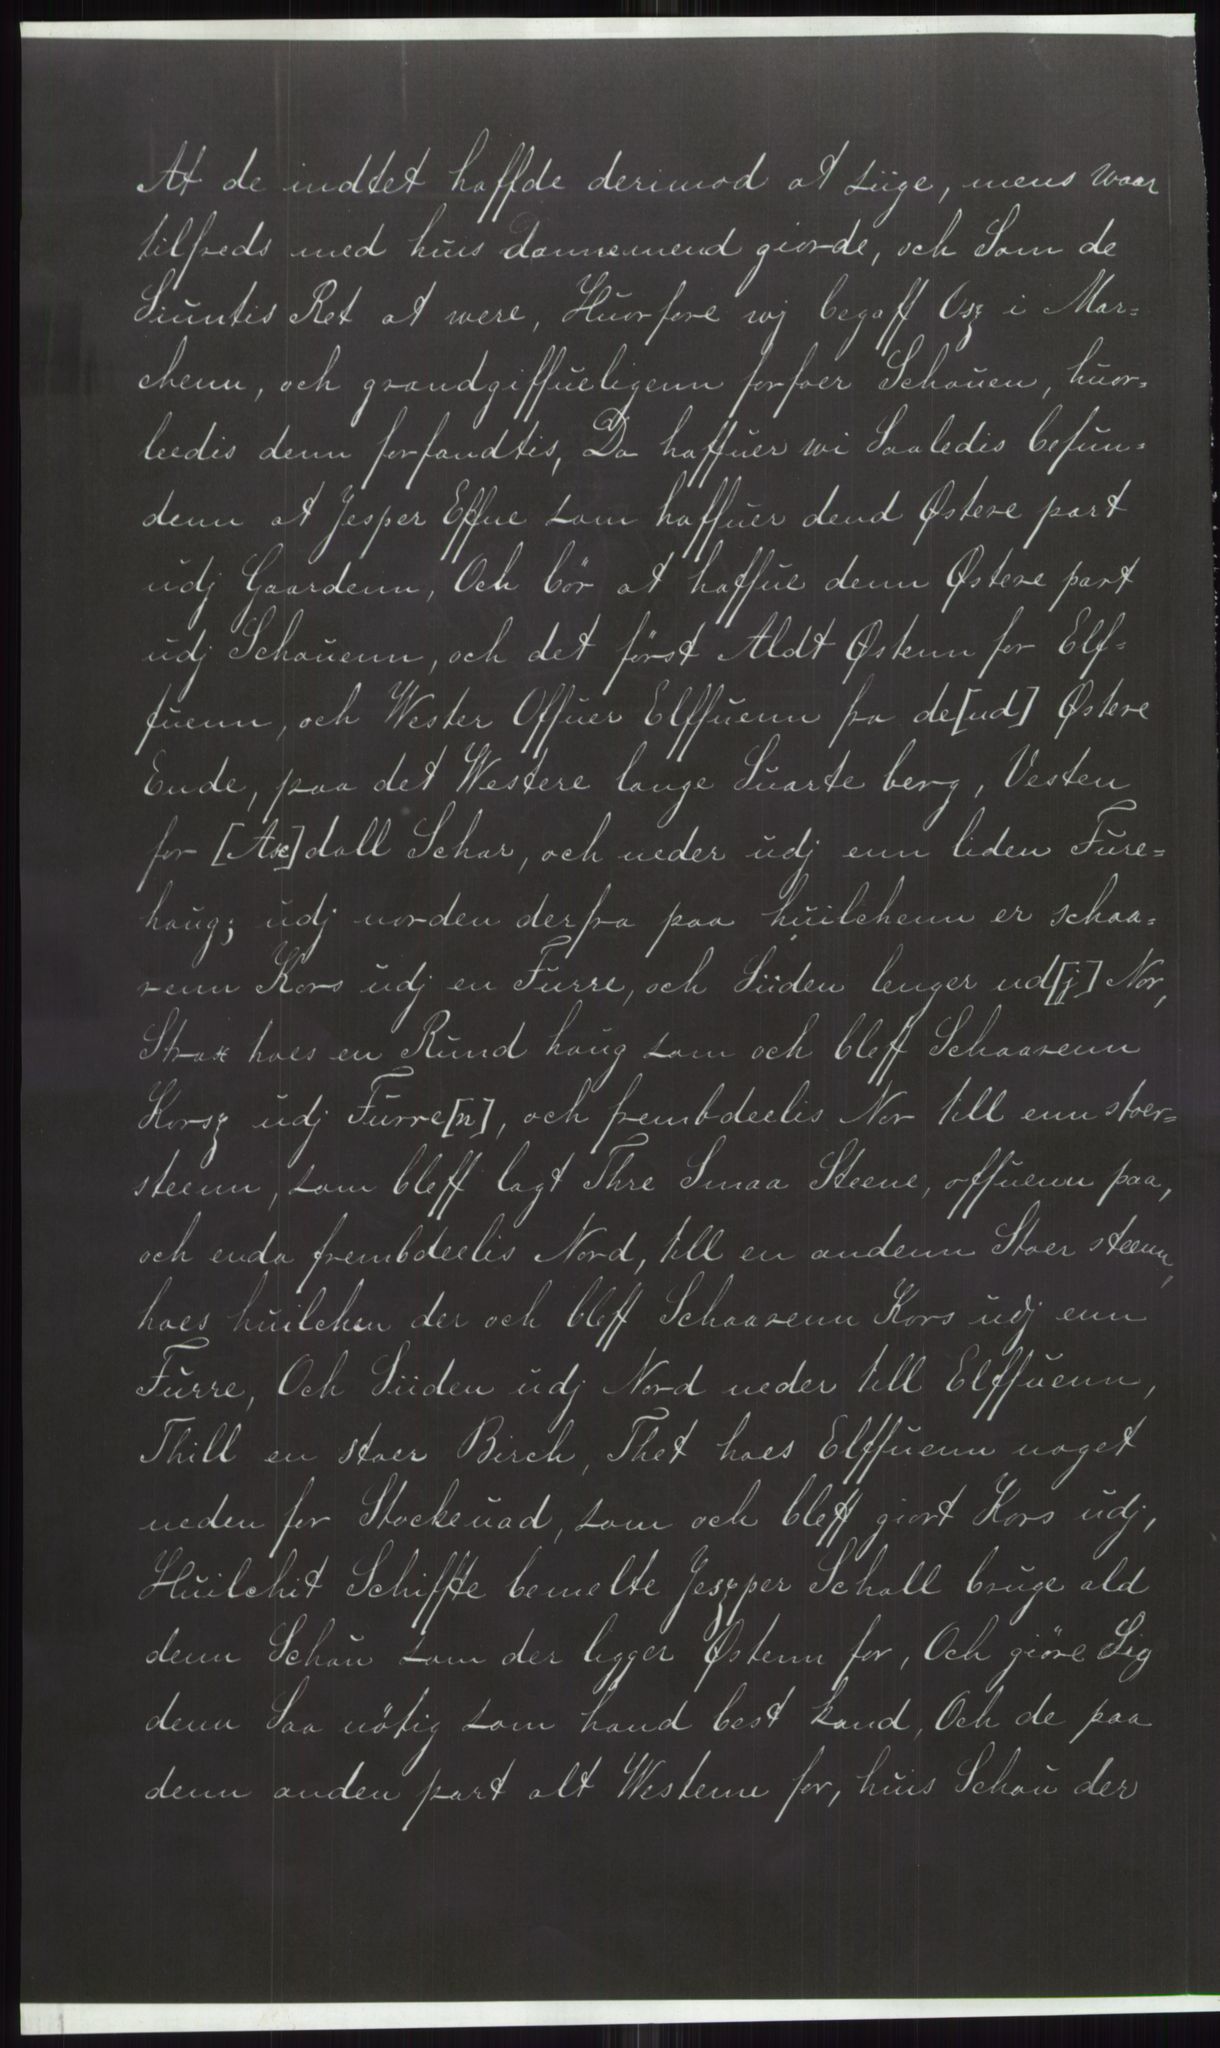 At de indtet haffde derimod at siige, mens waar
tilfreds med huis Dannemend giorde, och Som de
Siuntis Ret at were, Huorfore wj begaff Osz i Mar=
chenn, och grandgiffueligenn forfoer Schouen, huor=
leedis denn forfandtis, Da haffuer wi Saaledis befun=
denn at Jesper Effue som haffuer dend Østere part
udj Gaardenn, Och bör at haffue denn Østere part
udj Schouenn, och det först Aldt Østenn for Elf=
fuenn, och Wester Offuer Elffuenn fra de[nd] Østere
Ende, paa det Westere lange Suarte berg, Vesten
for [Asc]dall Schar, och neder udj enn liden Fure=
haug; udj norden derfra paa huilchenn er schaa=
renn Kors udj en Furre, och Siiden lenger ud[j] Nor,
Strax hoes en Rund haug som och bleff Schaarenn
Korsz udj Furre[n], och frembdeelis Nor till enn stoer=
steenn, som bleff lagt Thre Smaa Steene, offuenn paa,
och enda frembdeelis Nord, till en andenn Stoer steenn,
hoes huilchen der och bleff Schaarenn Kors udj enn
Furre, Och Siiden udj Nord neder till Elffuenn,
Thill en stoer Birch, Thet hoes Elffuenn noget
neden for Stockeuad, som och bleff giort Kors udj,
Huilchit Schiffte bemelte Jeszper Schall bruge ald
denn Schou som der ligger Østenn for, Och giöre Sig
denn Saa nötig som hand best kand, Och de paa
denn anden part alt Westenn for, huis Schou der